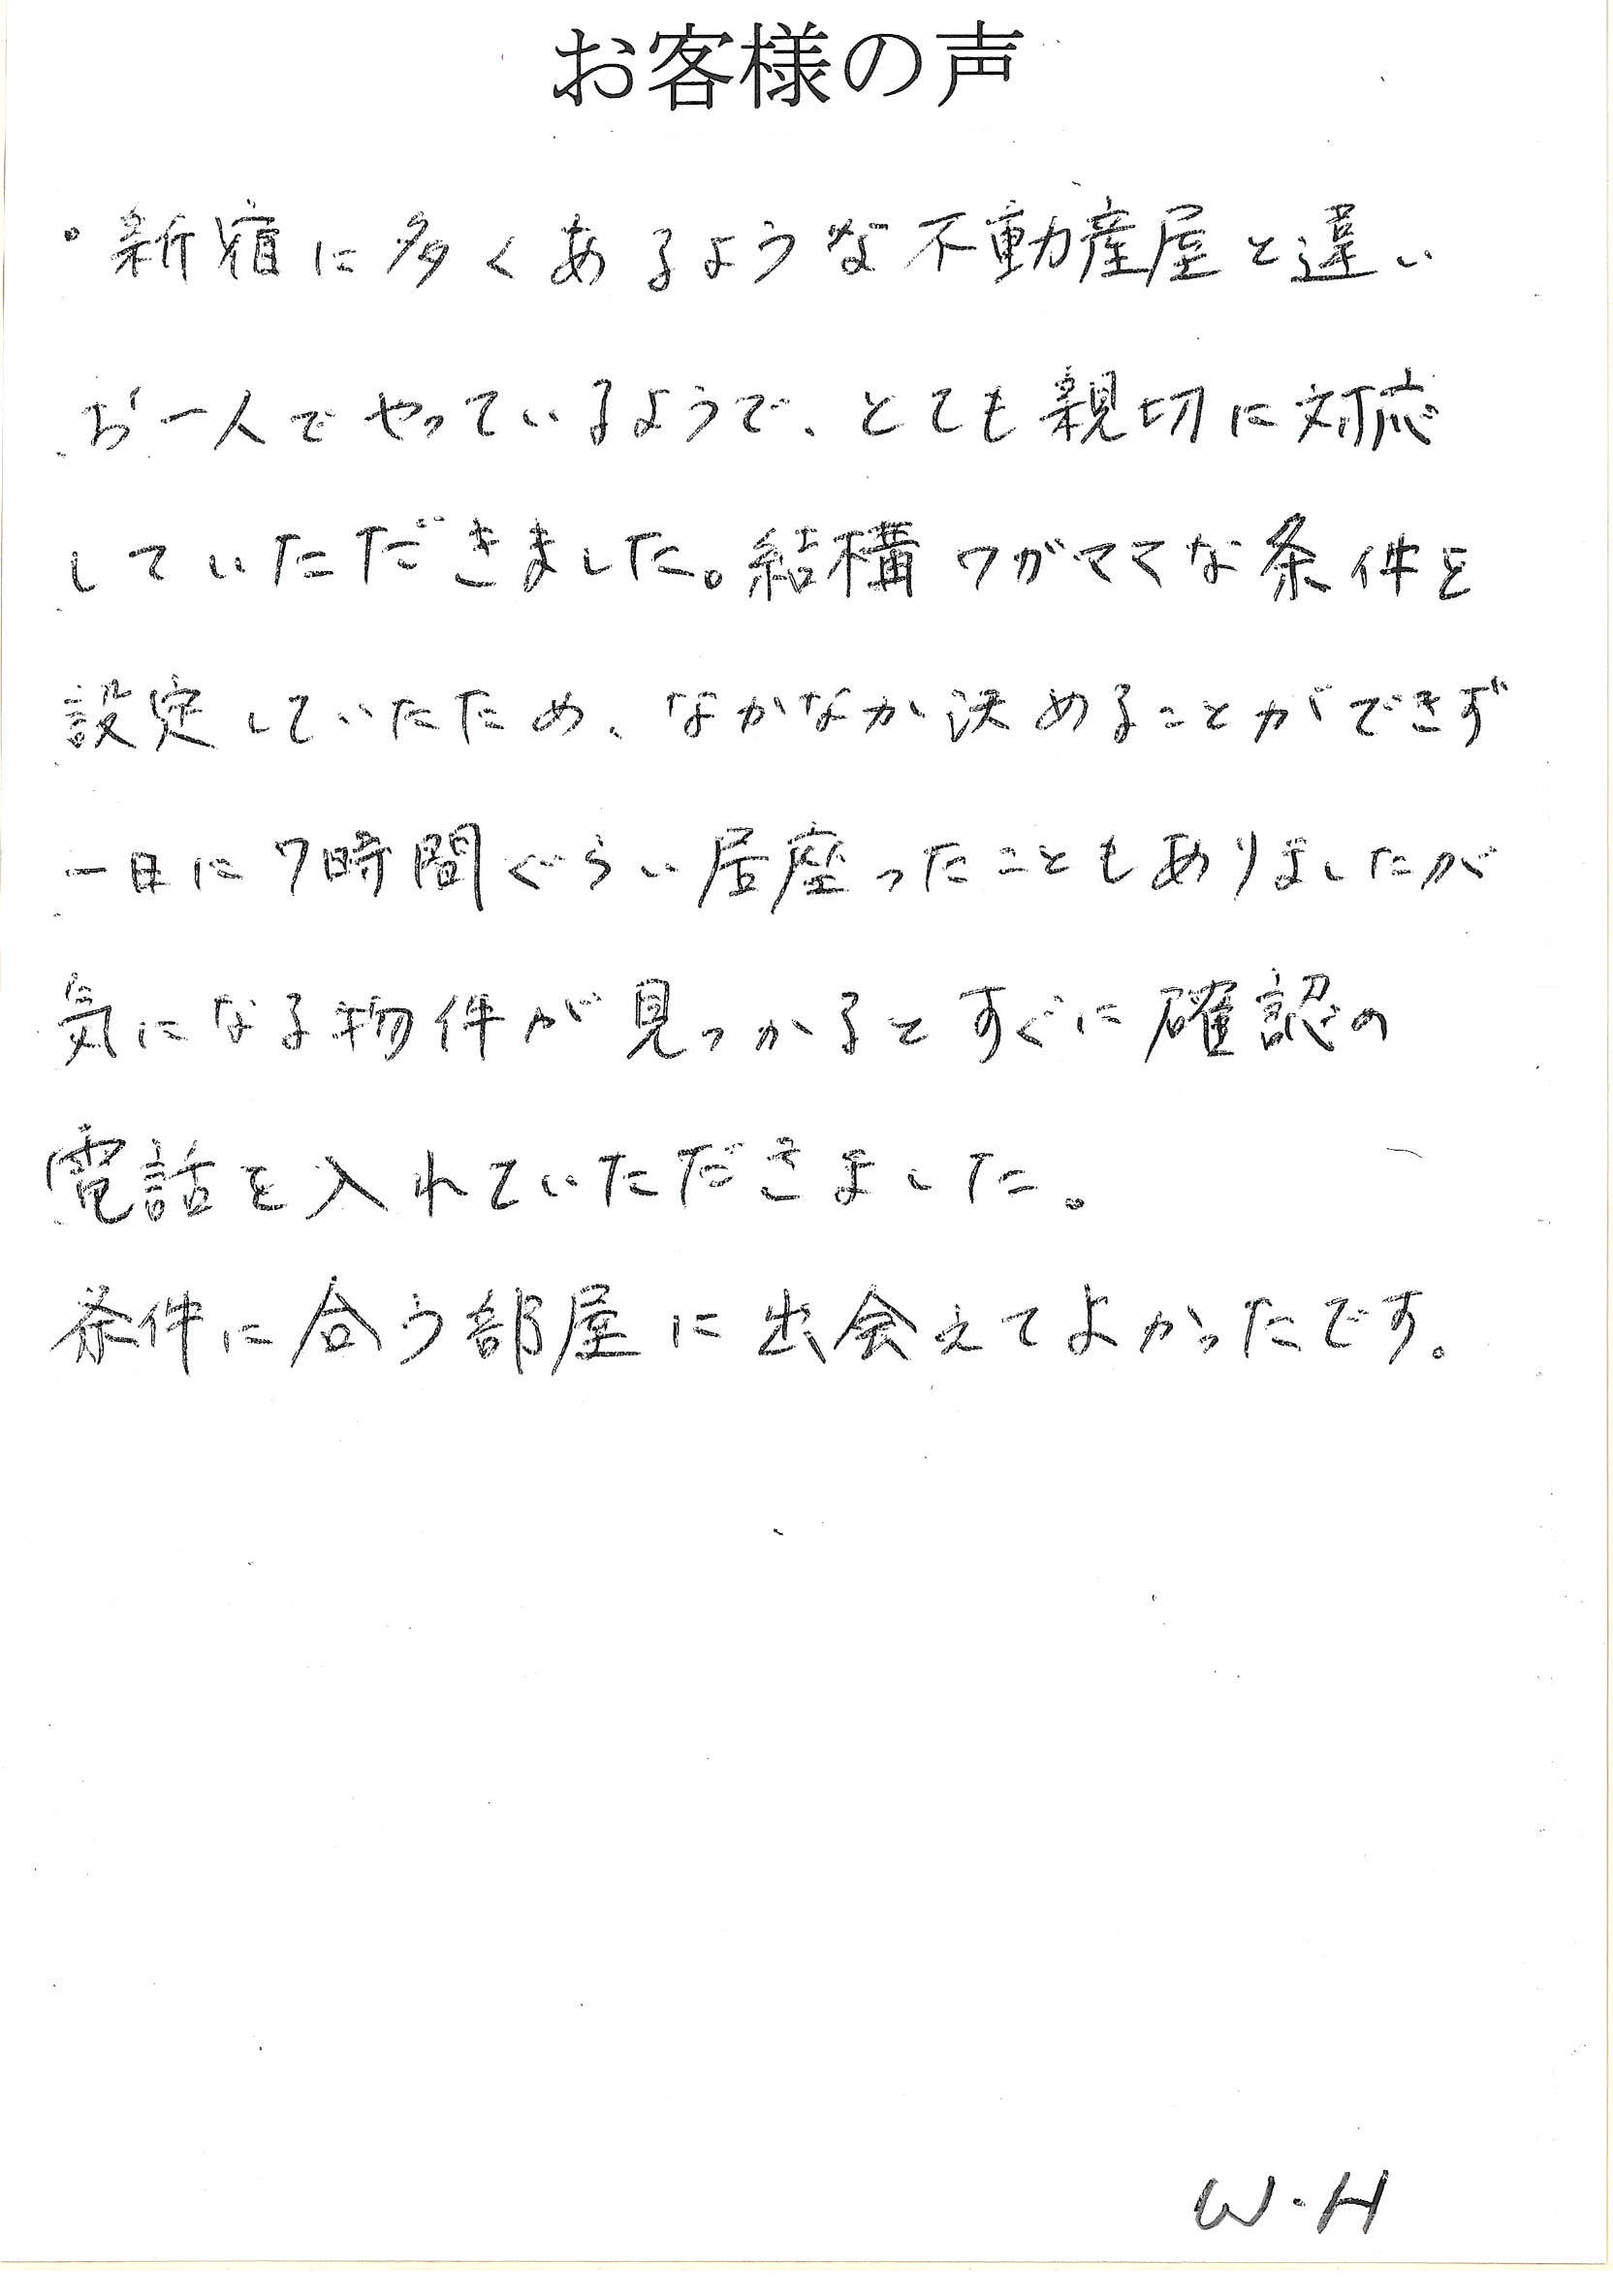 お客様の声
・新宿に多くあるような不動産屋と違い
お一人でやっているようで、とても親切に対応
していただきました。結構ワガママな条件を
設定していたため、なかなか決めることができず
一日に7時間ぐらい居座ったこともありましたが
気になる物件が見つかるとすぐに確認の
電話を入れていただきました。
条件に合う部屋に出会えてよかったです。
W・H